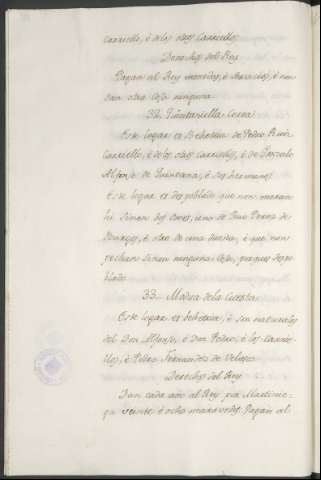 Carriello, é de los otros Carriellos.
Derechos del Rey
Pagan al Rey monedas, é servicios, é non
dan otra cosa ninguna.
32. Quintaniella Cerca
Este logar es Behetria de Pedro Ruiz
Carriello, é de los otros Carriellos, é de Gonzalo
Alfonso de Quintana, é sus hermanos
Este logar es despoblado que non moran
hi sinon dos omes, uno de Juan Perez de
é otro de una dueña, é que non
pechan sinon ninguna cosa, porque es despo
blado
33. Madra de la Cuesta
Este logar es behetria, é son naturales
del Don Alfonso, é Don Pedro, é los Carrie-
llos, é Pedro Fernandez de Velasco
Derechos del Rey
Dan cada año al Rey por Martinie-
ga veinte é ocho maravedis. Pagan al